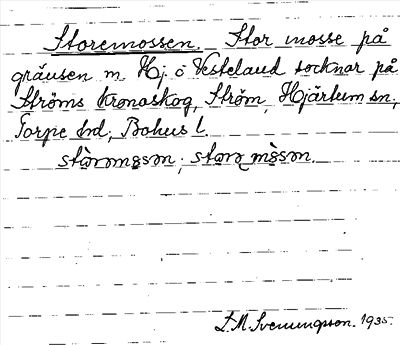 Storemossen. Stor mosse på
gränsen m. Hj. o Vesteland socknar på
Ströms kronoskog, Ström, Hjärtum sn,
Torpe hd, Bohus l.
L.M. Svenungsson. 1935.